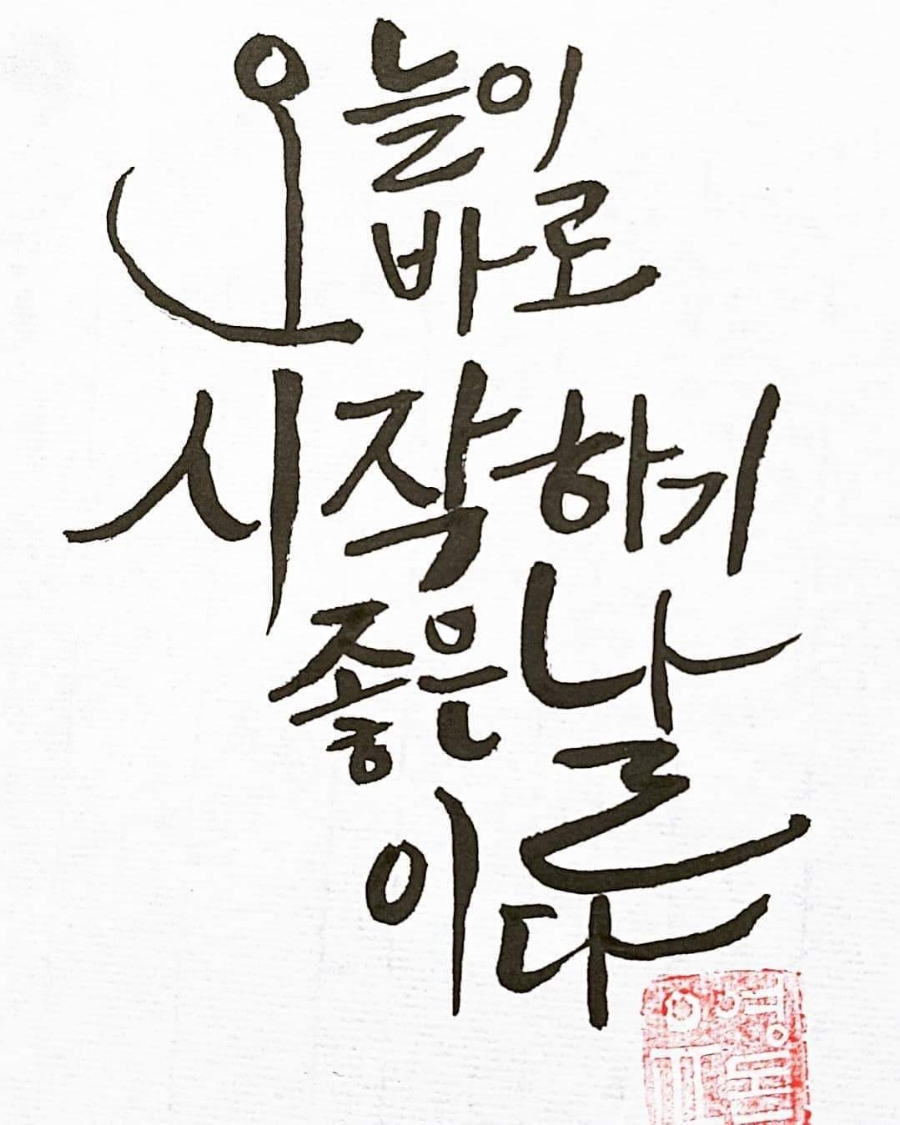 오늘이
바로
시작하기
좋은날
이다